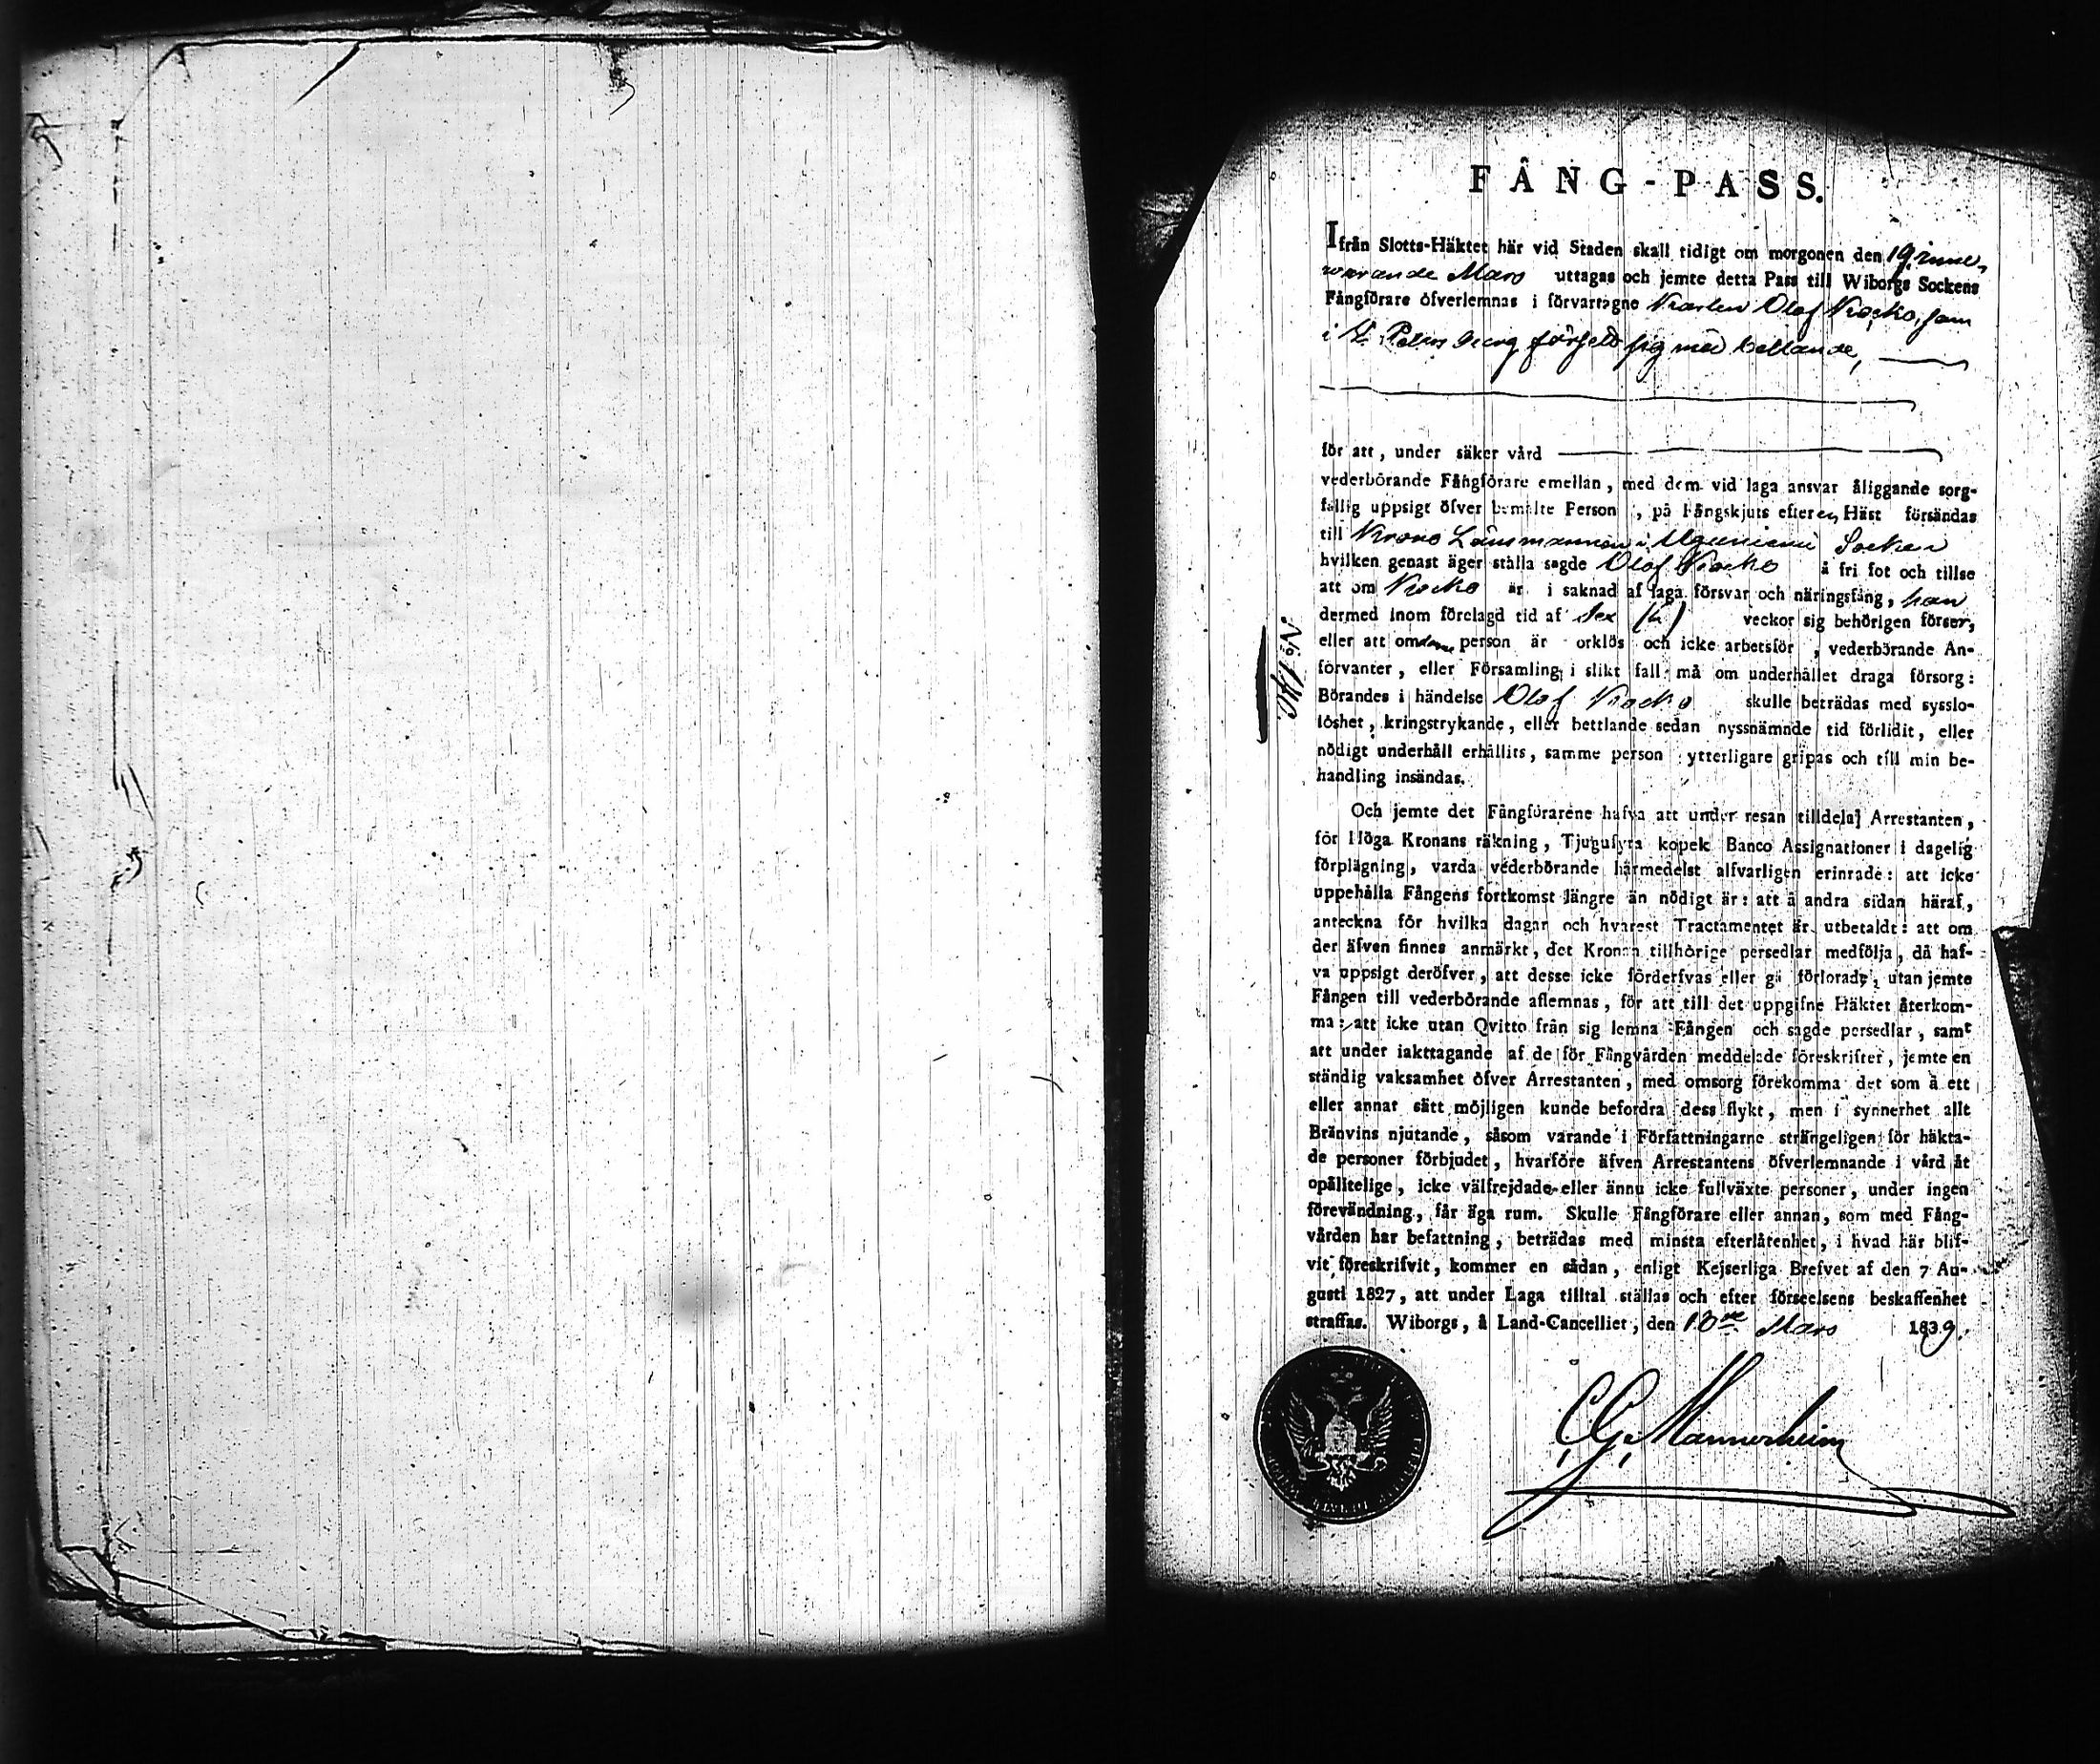 FÅNG-PASS.
Ifrån Slotts-Häktet här vid Staden skall tidigt om morgonen den 19 inne-
warande Mars uttagas och jemte detta Pass till Wiborgs Sockens
Fångförare öfverlemnas i förvartagne Karlen Olof Kocko, som
i St Petersburg försedt sig med bettlande,
för att, under säker vård
vederbörande Fångförare emellan, med dem vid laga ansvar åliggande sorg-
fällig uppsigt öfver bemälte Person, på Fångskjuts efter en Häst försändas
till Krono Länsmannen i Socken
hvilken genast äger ställa sagde Olof Kocko å fri fot och tillse
att om Kocko är i saknad af laga försvar och näringsfång, han
dermed inom förelagd tid af Sex (6) veckor sig behörigen förser,
eller att om denne person är orklös och icke arbetsför, vederbörande An-
förvanter, eller Församling i slikt fall må om underhållet draga försorg:
Börandes i händelse Olof Kocko skulle beträdas med sysslo-
löshet, kringstrykande, eller bettlande sedan nyssnämnde tid förlidit, eller
nödigt underhåll erhållits, samme person ytterligare gripas och till min be-
handling insändas.
Och jemte det Fångförarene hafva att under resan tilldela Arrestanten,
för Höga Kronans räkning, Tjugufyra kopek Banco Assignationer i dagelig
förplägning, varda vederbörande härmedelst alfvarligen erinrade: att icke
uppehålla Fångens fortkomst längre än nödigt är: att å andra sidan häraf,
anteckna för hvilka dagar och hvarest Tractamentet är utbetaldt: att om
der äfven finnes anmärkt, det Kronan tillhörige persedlar medfölja, då haf-
va uppsigt deröfver, att desse icke förderfvas eller gå förlorade, utan jemte
Fången till vederbörande aflemnas, för att till det uppgifne Häktet återkom-
ma: att icke utan Qvitto från sig lemna Fången och sagde persedlar, samt
att under iakttagande af de för Fångvården meddelade föreskrifter, jemte en
ständig vaksamhet öfver Arrestanten, med omsorg förekomma det som å ett
eller annat sätt möjligen kunde befordra dess flykt, men i synnerhet allt
Bränvins njutande, såsom varande i Författningarne strängeligen för häkta-
de personer förbjudet, hvarföre äfven Arrestantens öfverlemnande i vård åt
opålitelige, icke välfrejdade eller ännu icke fullväxte personer, under ingen
förevändning, får äga rum. Skulle Fångförare eller annan, som med Fång-
vården har befattning, beträdas med minsta efterlåtenhet, i hvad här blif-
vit föreskrifvit, kommer en sådan, enligt Kejserliga Brefvet af den 7 Au-
gusti 1827, att under Laga tilltal ställas och efter förseelsens beskaffenhet
straffas. Wiborgs, å Land-Cancelliet, den 18de Mars 1839.
C. G. Mannerheim